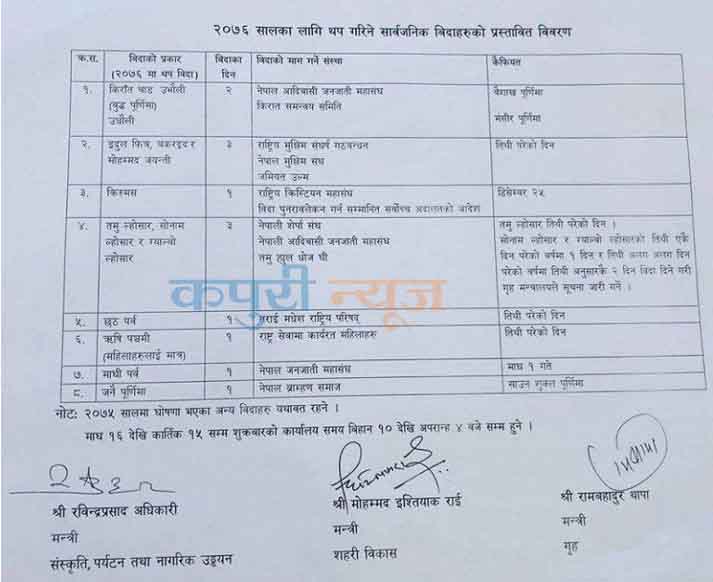 २०७६ सालका लागि थप गरिने सार्वजनिक विदाहरुको प्रस्तावित विवरण
क्र.स. विदाको प्रकार (२०७६ मा थप विदा) विदाका दिन विदाको माग गर्ने संस्था कैफियत
१. किराँत चाड उभौली २ नेपाल आदिवासी जनजाती महासंघ वैशाख पूर्णिमा
(बुद्ध पूर्णिमा) किरात समन्वय समिति
उधौली मंसीर पूर्णिमा
२. इदुल फित्र, बकरइद र ३ राष्ट्रिय मुश्लिम संघर्ष गठबन्धन तिथी परेको दिन
मोहम्मद जयन्ती नेपाल मुश्लिम संघ
जमियत उल्म
३. किस्मस १ राष्ट्रिय क्रिस्टियन महासंघ डिसेम्बर २५
विदा पुनरावलेकन गर्न सम्मानित सर्वोच्च अदालतको आदेश
४. तमु ल्होसार, सोनाम ३ नेपाली शेर्पा संघ तमु ल्होसार तिथी परेको दिन ।
ल्होसार र ग्याल्बो नेपाली आदिवासी जनजाती महासंघ सोनाम ल्होसार र ग्याल्बो ल्होसारको तिथी एकै
ल्होसार तमु ह्युल धोज घी दिन परेको वर्षमा १ दिन र तिथी अलग अलग दिन
परेको वर्षमा तिथी अनुसारकै २ दिन विदा दिने गरी
गृह मन्त्रालयले सूचना जारी गर्ने ।
कपुरी न्यूज
५. छठ पर्व १ तराई मधेश राष्ट्रिय परिषद् तिथी परेको दिन
६. ऋषि पञ्चमी १ राष्ट्र सेवामा कार्यरत महिलाहरु तिथी परेको दिन
(महिलाहरुलाई मात्र)
७. माघी पर्व १ नेपाल जनजाती महासंघ माघ १ गते
८. जनै पूर्णिमा १ नेपाल ब्राम्हण समाज साउन शुक्ल पूर्णिमा
नोटः २०७५ सालमा घोषणा भएका अन्य विदाहरु यथावत रहने ।
माघ १६ देखि कार्तिक १५ सम्म शुक्रबारको कार्यालय समय बिहान १० देखि अपरान्ह ४ बजे सम्म हुने ।
श्री रविन्द्रप्रसाद अधिकारी श्री मोहम्मद इश्तियाक राई श्री रामबहादुर थापा
मन्त्री मन्त्री मन्त्री
संस्कृति, पर्यटन तथा नागरिक उड्डयन शहरी विकास गृह